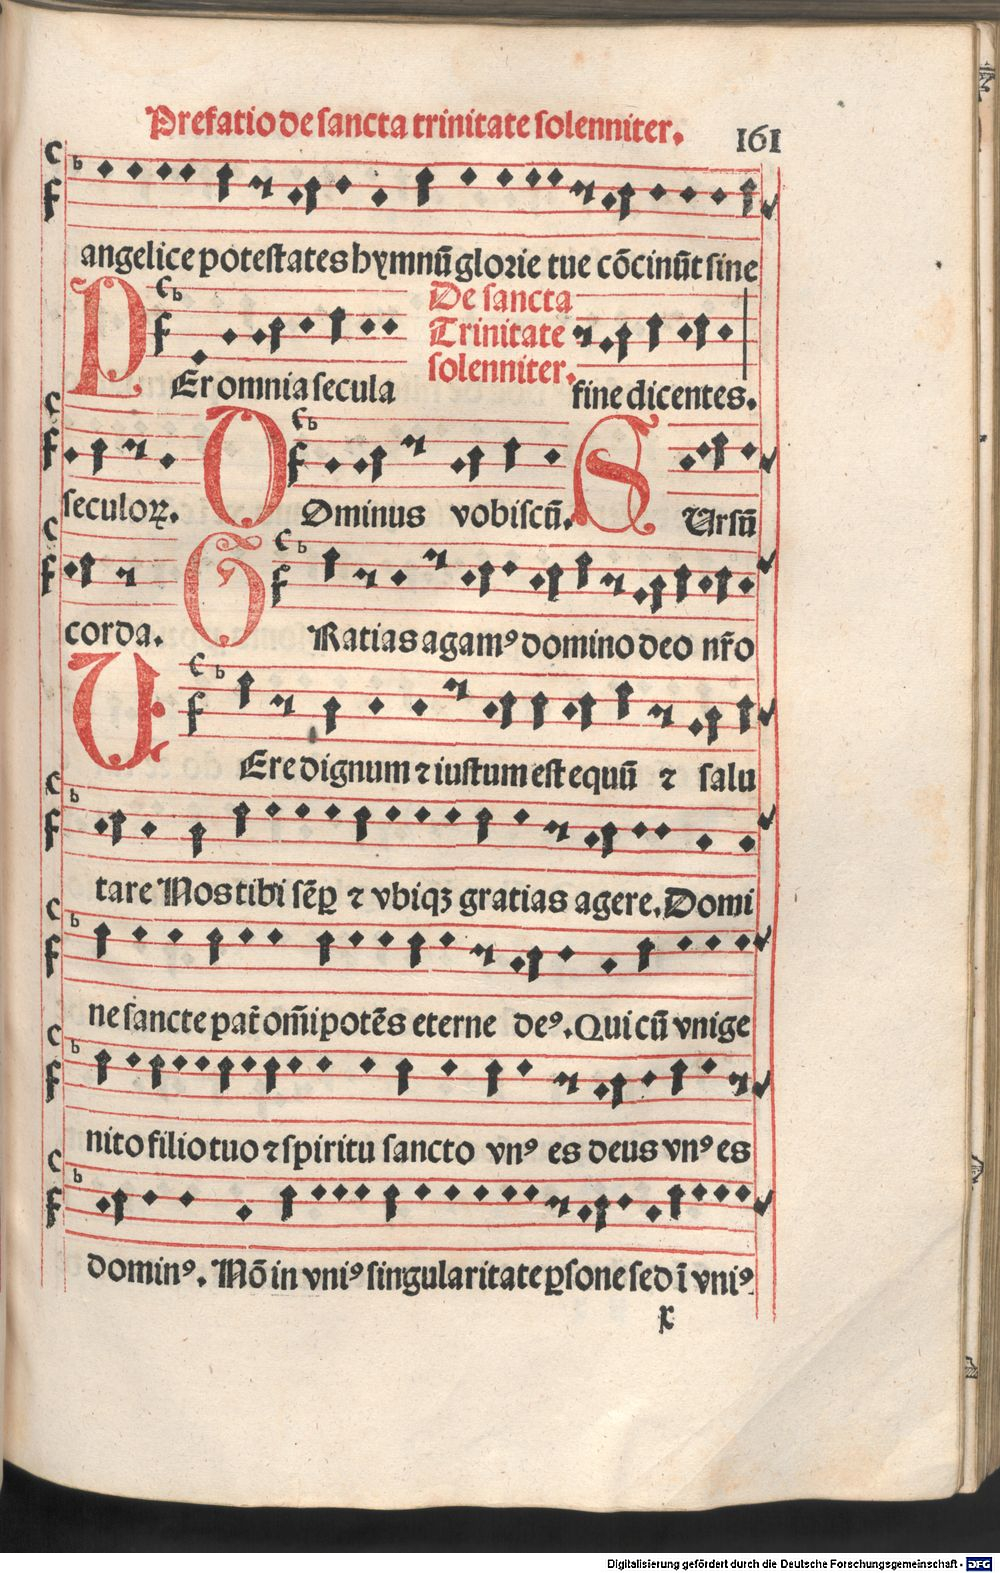 Prefatio de sancta trinitate solenniter.
161
angelice potestates hymnū glorie tue cōcinūt sine
De sancta
Trinitate
solenniter.
PEr omnia secula
fine dicentes.
seculoꝝ.
DOminus vobiscū.
SUrsū
corda.
GRatias agamꝰ domino deo nr̄o
VEre dignum ⁊ iustum est equū ⁊ salu
tare Nos tibi sēꝑ ⁊ vbiqꝫ gratias agere. Domi
ne sancte pat̄ om̄ipotēs eterne deꝰ. Qui cū vnige
nito filio tuo ⁊ spiritu sancto vnꝰ es deus vnꝰ es
dominꝰ. Nō in vniꝰ singularitate ꝑsone sed ī vniꝰ
x
Digitalisierung gefördert durch die Deutsche Forschungsgemeinschaft - DFG